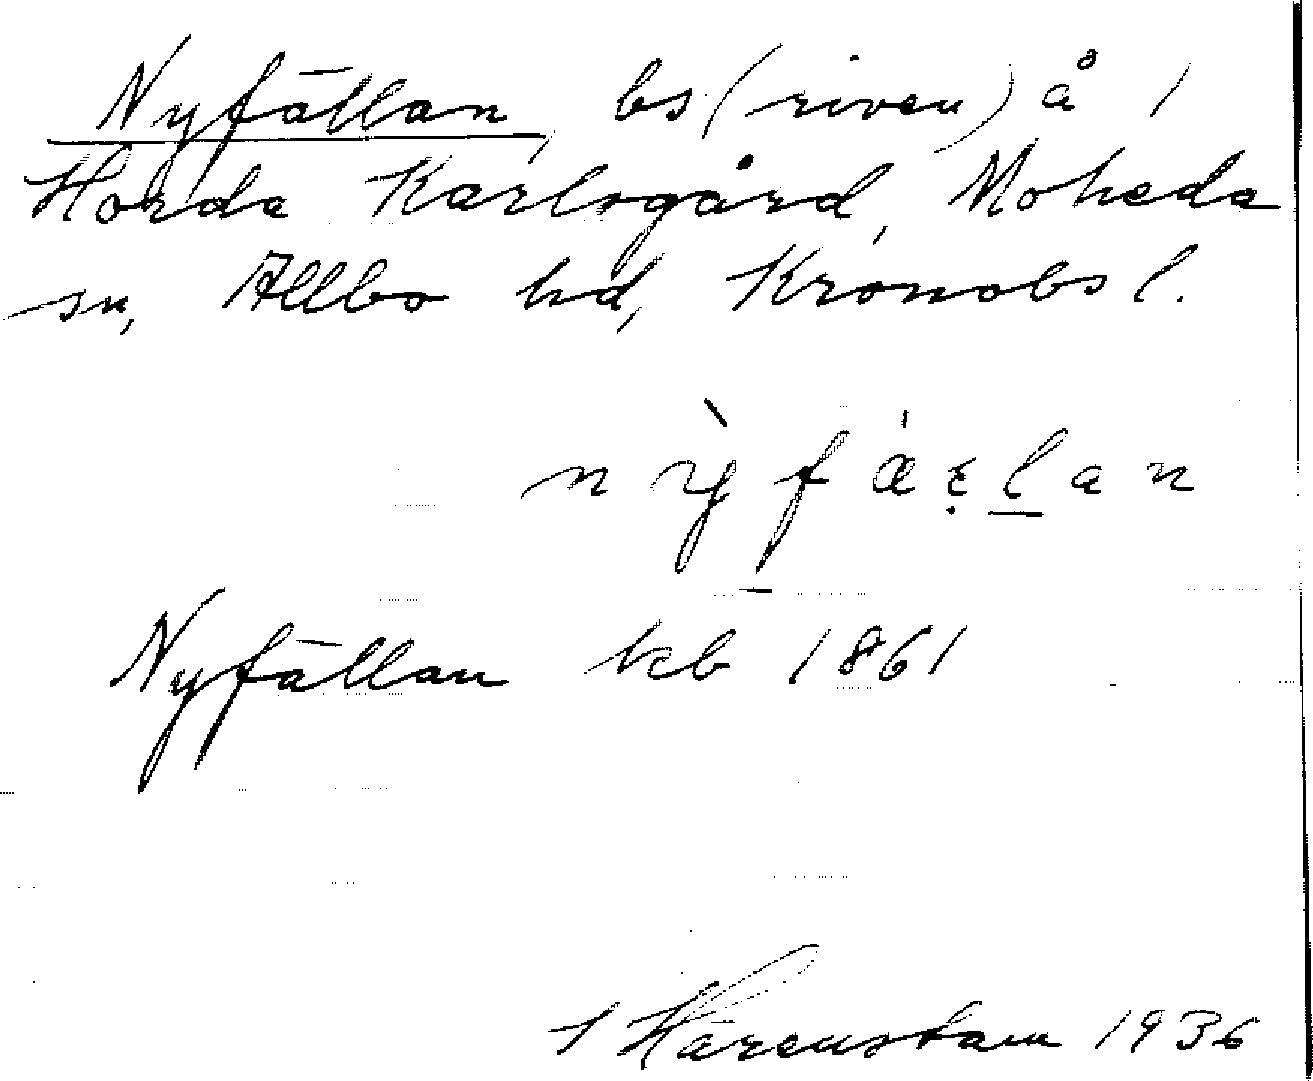 Nyfällan, bs (riven) å 1
Horda Karlsgård, Moheda
sn, Allbo hd, Kronobs l.
nỳfáęlan
Nyfällan kb 1861
S Härenstam 1936